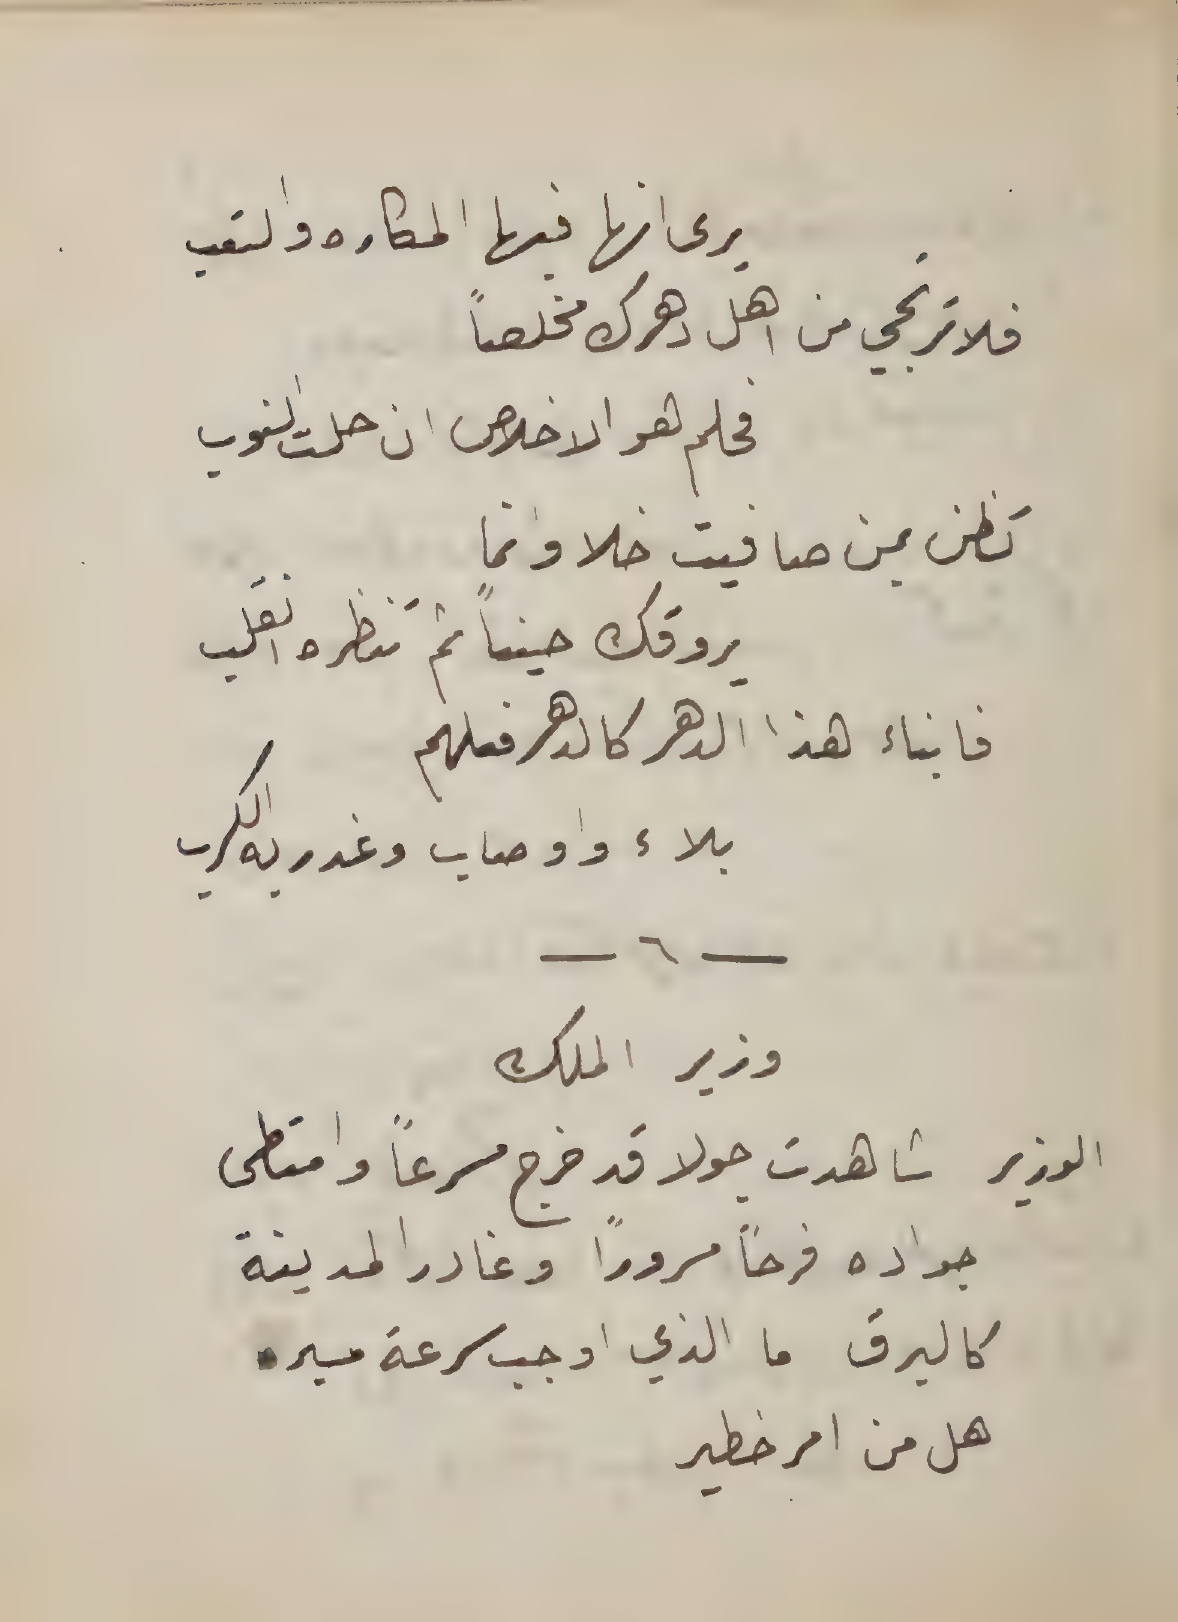 يرى انها فيها المكاره والتعب
فلا ترتجي من اهل دهرك مخلصاً
فحلم هو الاخلاص ان حلت النوب
تظن بمن صافيت خلا وانما
يروقك حيناً ثم تنظره انقلب
فابناء هذا الدهر كالدهر فعلهم
بلاء واوصاب وغدر به الكرب
— ٦ —
وزير الملك
الوزير شاهدت جولا قد خرج مسرعاً وامتطى
جواده فرحاً مسروراً وغادر المدينة
كالبرق ما الذي اوجب سرعة مسيره
هل من امر خطير